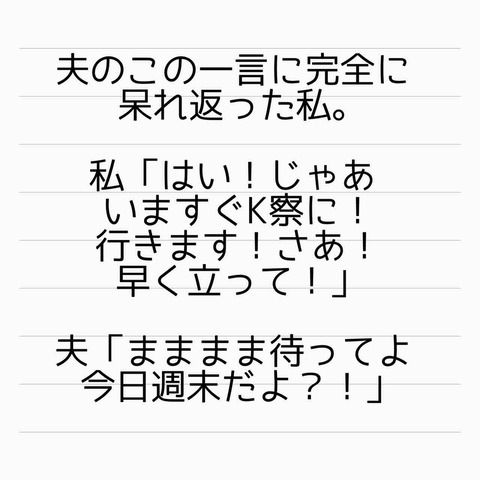 夫のこの一言に完全に
呆れ返った私。
私「はい！じゃあ
いますぐK察に！
行きます！さあ！
早く立って！」
夫「まままま待ってよ
今日週末だよ？！」